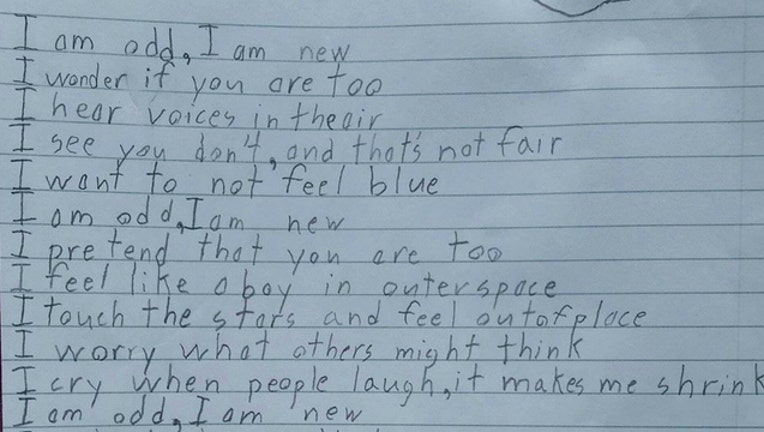 I am odd, I am new
I wonder if you are too
I hear voices in the air
I see you don't, and that's not fair
I want to not feel blue
I am odd, I am new
I pretend that you are too
I feel like a boy in outerspace
I touch the stars and feel out of place
I worry what others might think
I cry when people laugh, it makes me shrink
I am odd, I am new